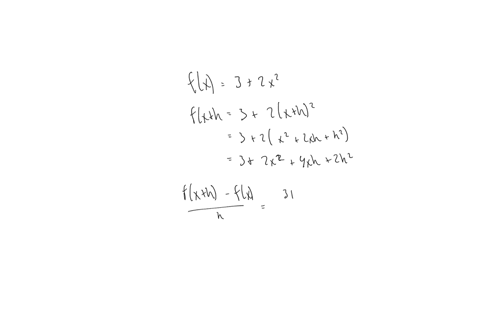 f(x) = 3 + 2x²
f(x+h = 3 + 2(x+h)²
= 3+2(x²+2xh+h²)
= 3+2x²+4xh+2h²
f(x+h) - f(x)
h
= 3